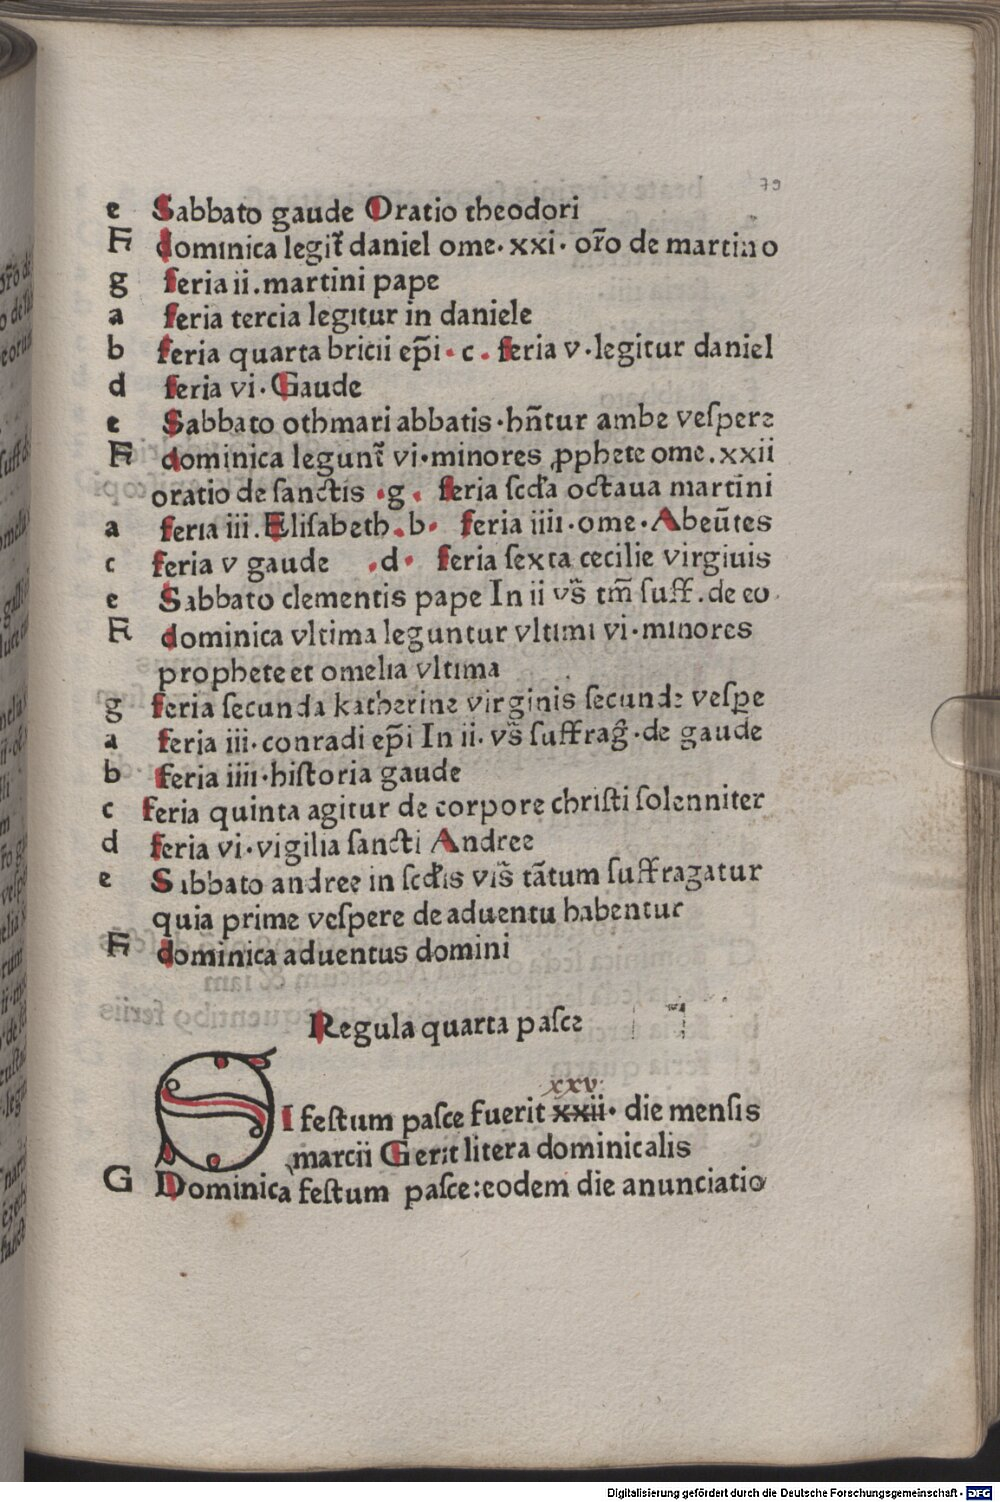 79
e Sabbato gaude Oratio theodori
F dominica legit̃ daniel ome. xxi. or̃o de martino
g feria ii. martini pape
a feria tercia legitur in daniele
b feria quarta bricii ep̃i. c. feria v. legitur daniel
d feria vi. Gaude
e Sabbato othmari abbatis. hñtur ambe veſpere
F dominica legunt̃ vi. minores ꝓphete ome. xxii
oratio de ſanctis .g. feria ſcd̃a octaua martini
a feria iii. Eliſabeth. b. feria iiii. ome. Abeũtes
c feria v gaude .d. feria ſexta cecilie virgiuis
e Sabbato clementis pape In ii vs̃ tm̃ ſuff. de eo
F dominica vltima leguntur vltimi vi. minores
prophete et omelia vltima
g feria ſecunda katherine virginis ſecunde veſꝑe
a feria iii. conradi ep̃i In ii. vs̃ ſuffrag̃. de gaude
b feria iiii. hiſtoria gaude
c feria quinta agitur de corpore chriſti ſolenniter
d feria vi. vigilia ſancti Andree
e Sabbato andree in ſcd̃is vis̃ tãtum ſuffragatur
quia prime veſpere de aduentu habentur
F dominica aduentus domini
Regula quarta paſce
xxv.
SI feſtum paſce fuerit xxii. die menſis
marcii Gerit litera dominicalis
G Dominica feſtum paſce: eodem die anunciatio
Digitalisierung gefördert durch die Deutsche Forschungsgemeinschaft - DFG